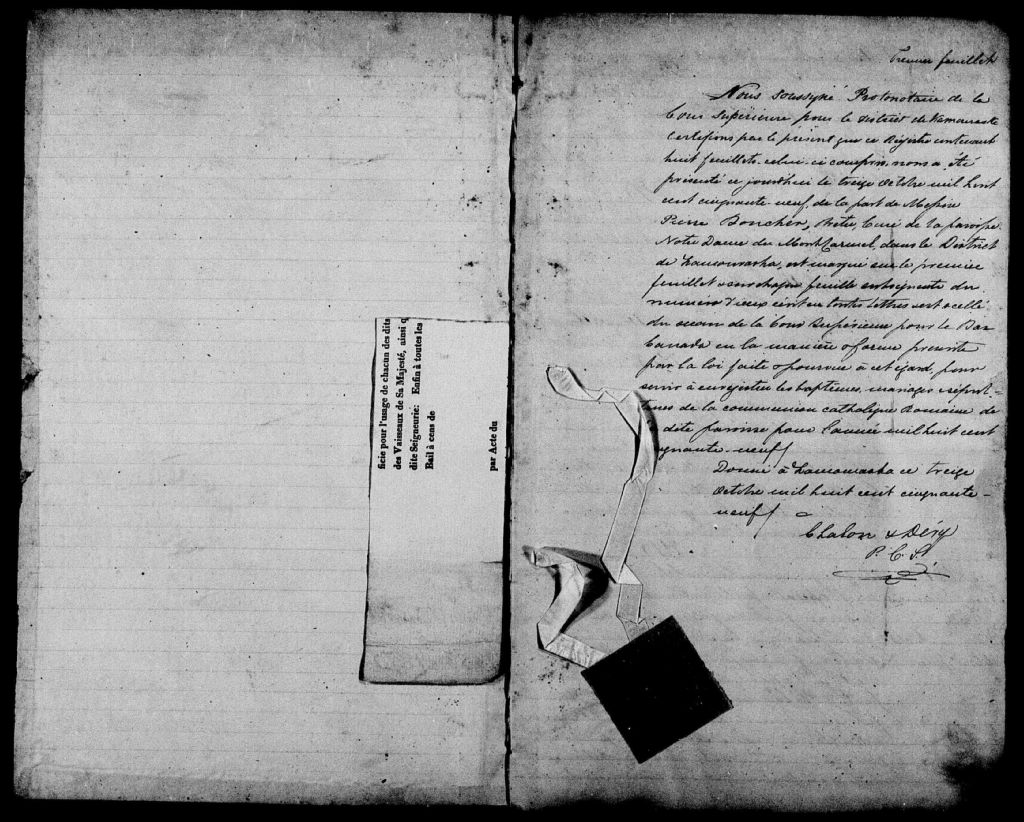 ficie pour l'usage de chacun des dits
des Vaisseaux de Sa Majesté, ainsi q
dite Seigneurie: Enfin à toutes les
Bail à cens de
par Acte du
Premier feuillet
Nous soussigné Protonotaire de la
Cour Supérieure pour le district de Kamouraska
Certifions par le présent que ce Régistre contenant
huit feuillets celui-ci compris, nous a été
présenté ce jourdhui le treize Octobre mil huit
cent cinquante neuf, de la part de Messire
Pierre Boucher, Prêtre, Curé de la paroisse
Notre Dame du Mont Carmel, dans le District
de Kamouraska, est marqué sur le premier
feuillet & sur chaque feuillet subséquente du
numéro d'iceux écrit en toutes lettres & est scellé
du sceau de la Cour Supérieure pour le Bas
Canada en la manière & forme prescrite
par la loi faite & pourvue à cet égard, pour
servir à enregistrer les baptêmes, mariages & sépul-
tures de la communion catholique Romaine de
dite paroisse pour l'année mil huit cent
quante-neuf
Donné à Kamouraska ce treize
Octobre mil huit cent cinquante-
neuf
Chalon & Déry
P. C. S.